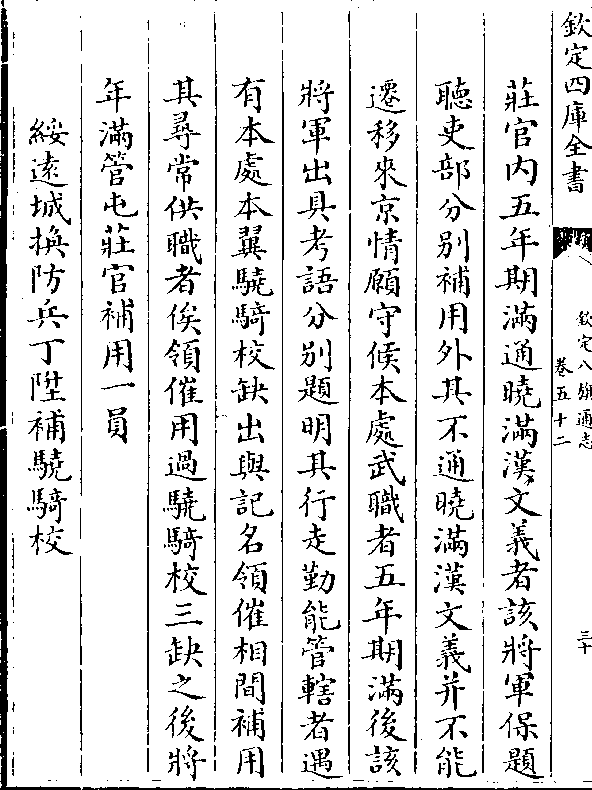 欽定四庫全書
欽定八旗通志
卷五十二
三十
莊官内五年期滿通曉滿漢文義者該將軍保題
聽吏部分别補用外其不通曉滿漢文義并不能
遷移來京情願守候本處武職者五年期滿後該
將軍出具考語分别題明其行走勤能管轄者遇
有本處本翼驍騎校缺出與記名領催相間補用
其尋常供職者俟領催用過驍騎校三缺之後將
年滿管屯莊官補用一員
綏逺城換防兵丁陞補驍騎校